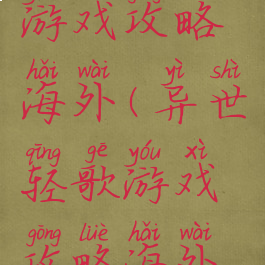 游戏攻略
hǎi wài yì shì
海外(异世
qīng gē yóu xì
轻歌游戏
gōng lüè hǎi wài
攻略海外